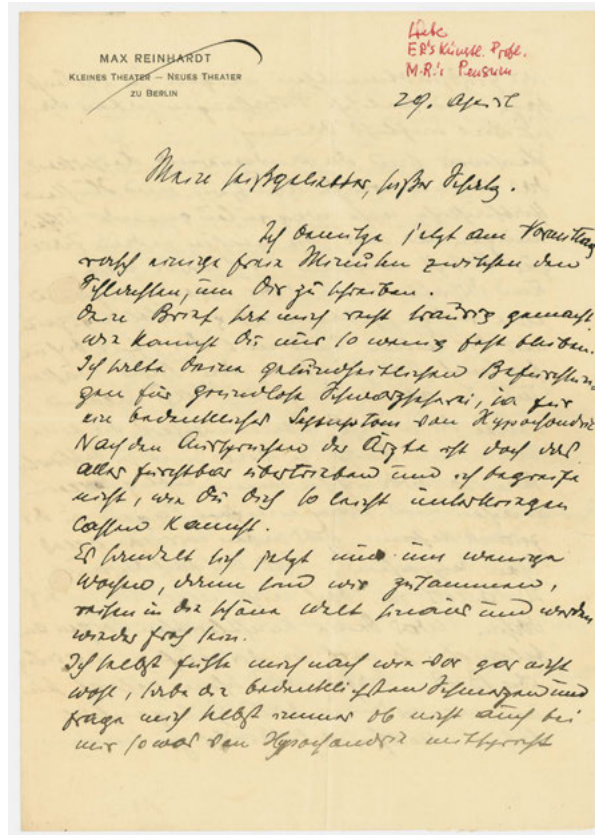 MAX REINHARDT
KLEINES THEATER — NEUES THEATER
ZU BERLIN
Liebe
ER's Künstl. Profl.
M.R.'s Pensum
29. April
Meine heißgeliebter, süßer Schatz.
Ich benütze jetzt am Vormittag
rasch einige freie Minuten zwischen den
um Dir zu schreiben.
Dein Brief hat mich recht traurig gemacht
wie kannst Du nur so wenig fest bleiben.
Ich halte Deine gesundheitlichen Befürchtun-
gen für grundlose Schwarzseherei, ja für
ein bedenkliches Symptom von Hypochondrie
Nach den Aussprüchen der Ärzte ist doch das
alles furchtbar übertrieben und ich begreife
nicht, wie Du Dich so leicht unterkriegen
lassen kannst.
Es handelt sich jetzt nur um wenige
Wochen, dann sind wir zusammen,
reisen in die schöne Welt hinaus und werden
wieder froh sein.
Ich selbst fühle mich nach wie vor gar nicht
wohl, habe die bedenklichsten Schmerzen und
frage mich selbst immer ob nicht auch bei
mir so was von Hypochondrie mitspricht